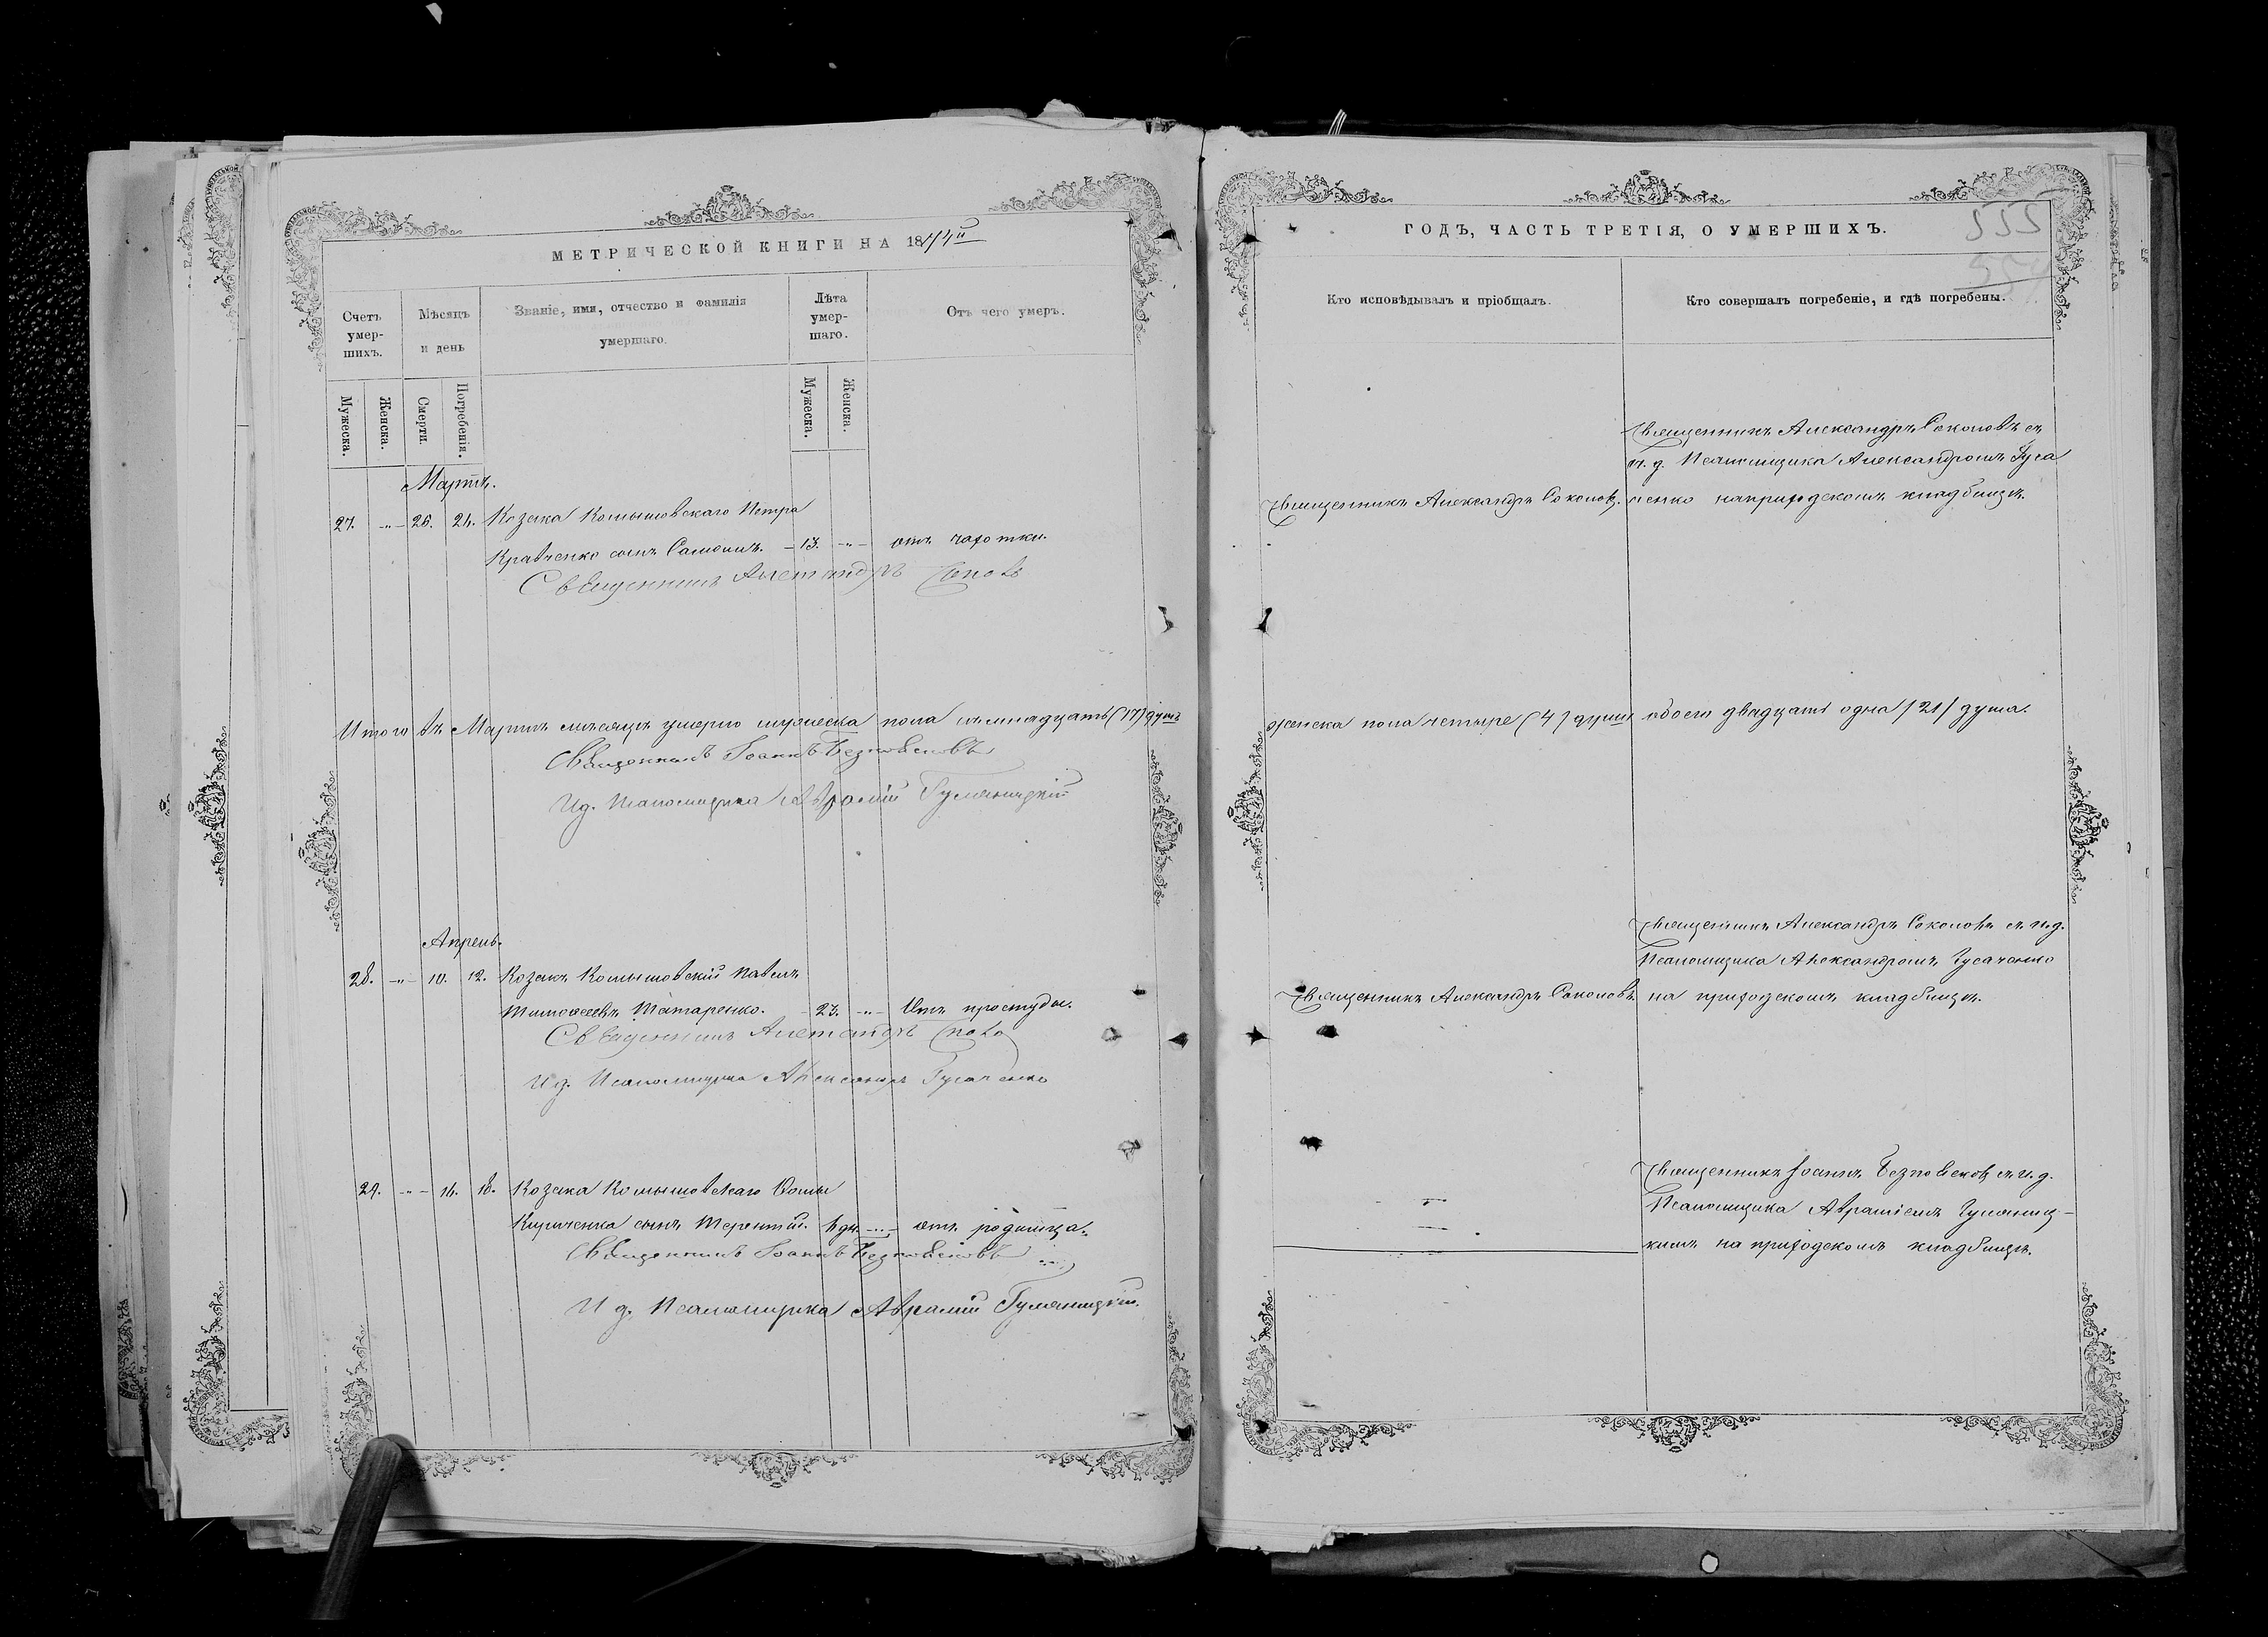 МЕТРИЧЕСКОЙ КНИГИ НА 1874й
Счетъ умер-шихъ.
Мѣсяцъ и день
Званіе, имя, отчество и фамилія умершаго.
Лѣта умер-шаго.
Отъ чего умеръ.
Мужеска.
Женска.
Смерти.
Погребенія.
Мужеска.
Женска.
Мартъ.
27. -„- 24. Козака Комышовскаго Петра
Кравченко сынъ Самоилъ. - 13. -„- отъ чахотки.
Священникъ Александръ
Итого въ Мартѣ мѣсяцѣ умерло мужеска пола семнадцать (17) душъ
Священникъ Іоаннъ Безповѣсковъ
И д. Псаломщика Авраміи Гуменицкій
Апрель.
28. -„- 10. 12. Козакъ Комышовскій Павелъ
Тимоѳеевъ Татаренко. - 23. -„- Отъ простуды.
Священникъ Александръ
И д. Псаломщика Александръ Гусаченко
29. -„- 16. 18. Козака Комышовскаго Ѳомы
Кириченка сынъ Терентій. дн. -„- отъ родимца.
Священникъ Іоаннъ Безповѣсковъ
И д. Псаломщика Авраміи Гуменицкій.
ГОДЪ, ЧАСТЬ ТРЕТІЯ, О УМЕРШИХЪ.
555
Кто исповѣдывалъ и пріобщалъ.
Кто совершалъ погребеніе, и гдѣ погребены.
Священникъ Александръ Соколовъ съ
и. д. Псаломщика Александромъ Гуса
Священникъ Александръ Соколовъ. ченко на приходскомъ кладбищѣ.
женска пола четыре (4) души обоего двадцать одна /21/ душа.
Священникъ Александръ Соколовъ съ и.д.
Псаломщика Александромъ Гусаченко
Священникъ Александръ Соколовъ на приходскомъ кладбищѣ.
Священникъ Іоаннъ Безповѣсковъ съ и. д.
Псаломщика Авраміемъ Гумениц-
кимъ на приходскомъ кладбищѣ.